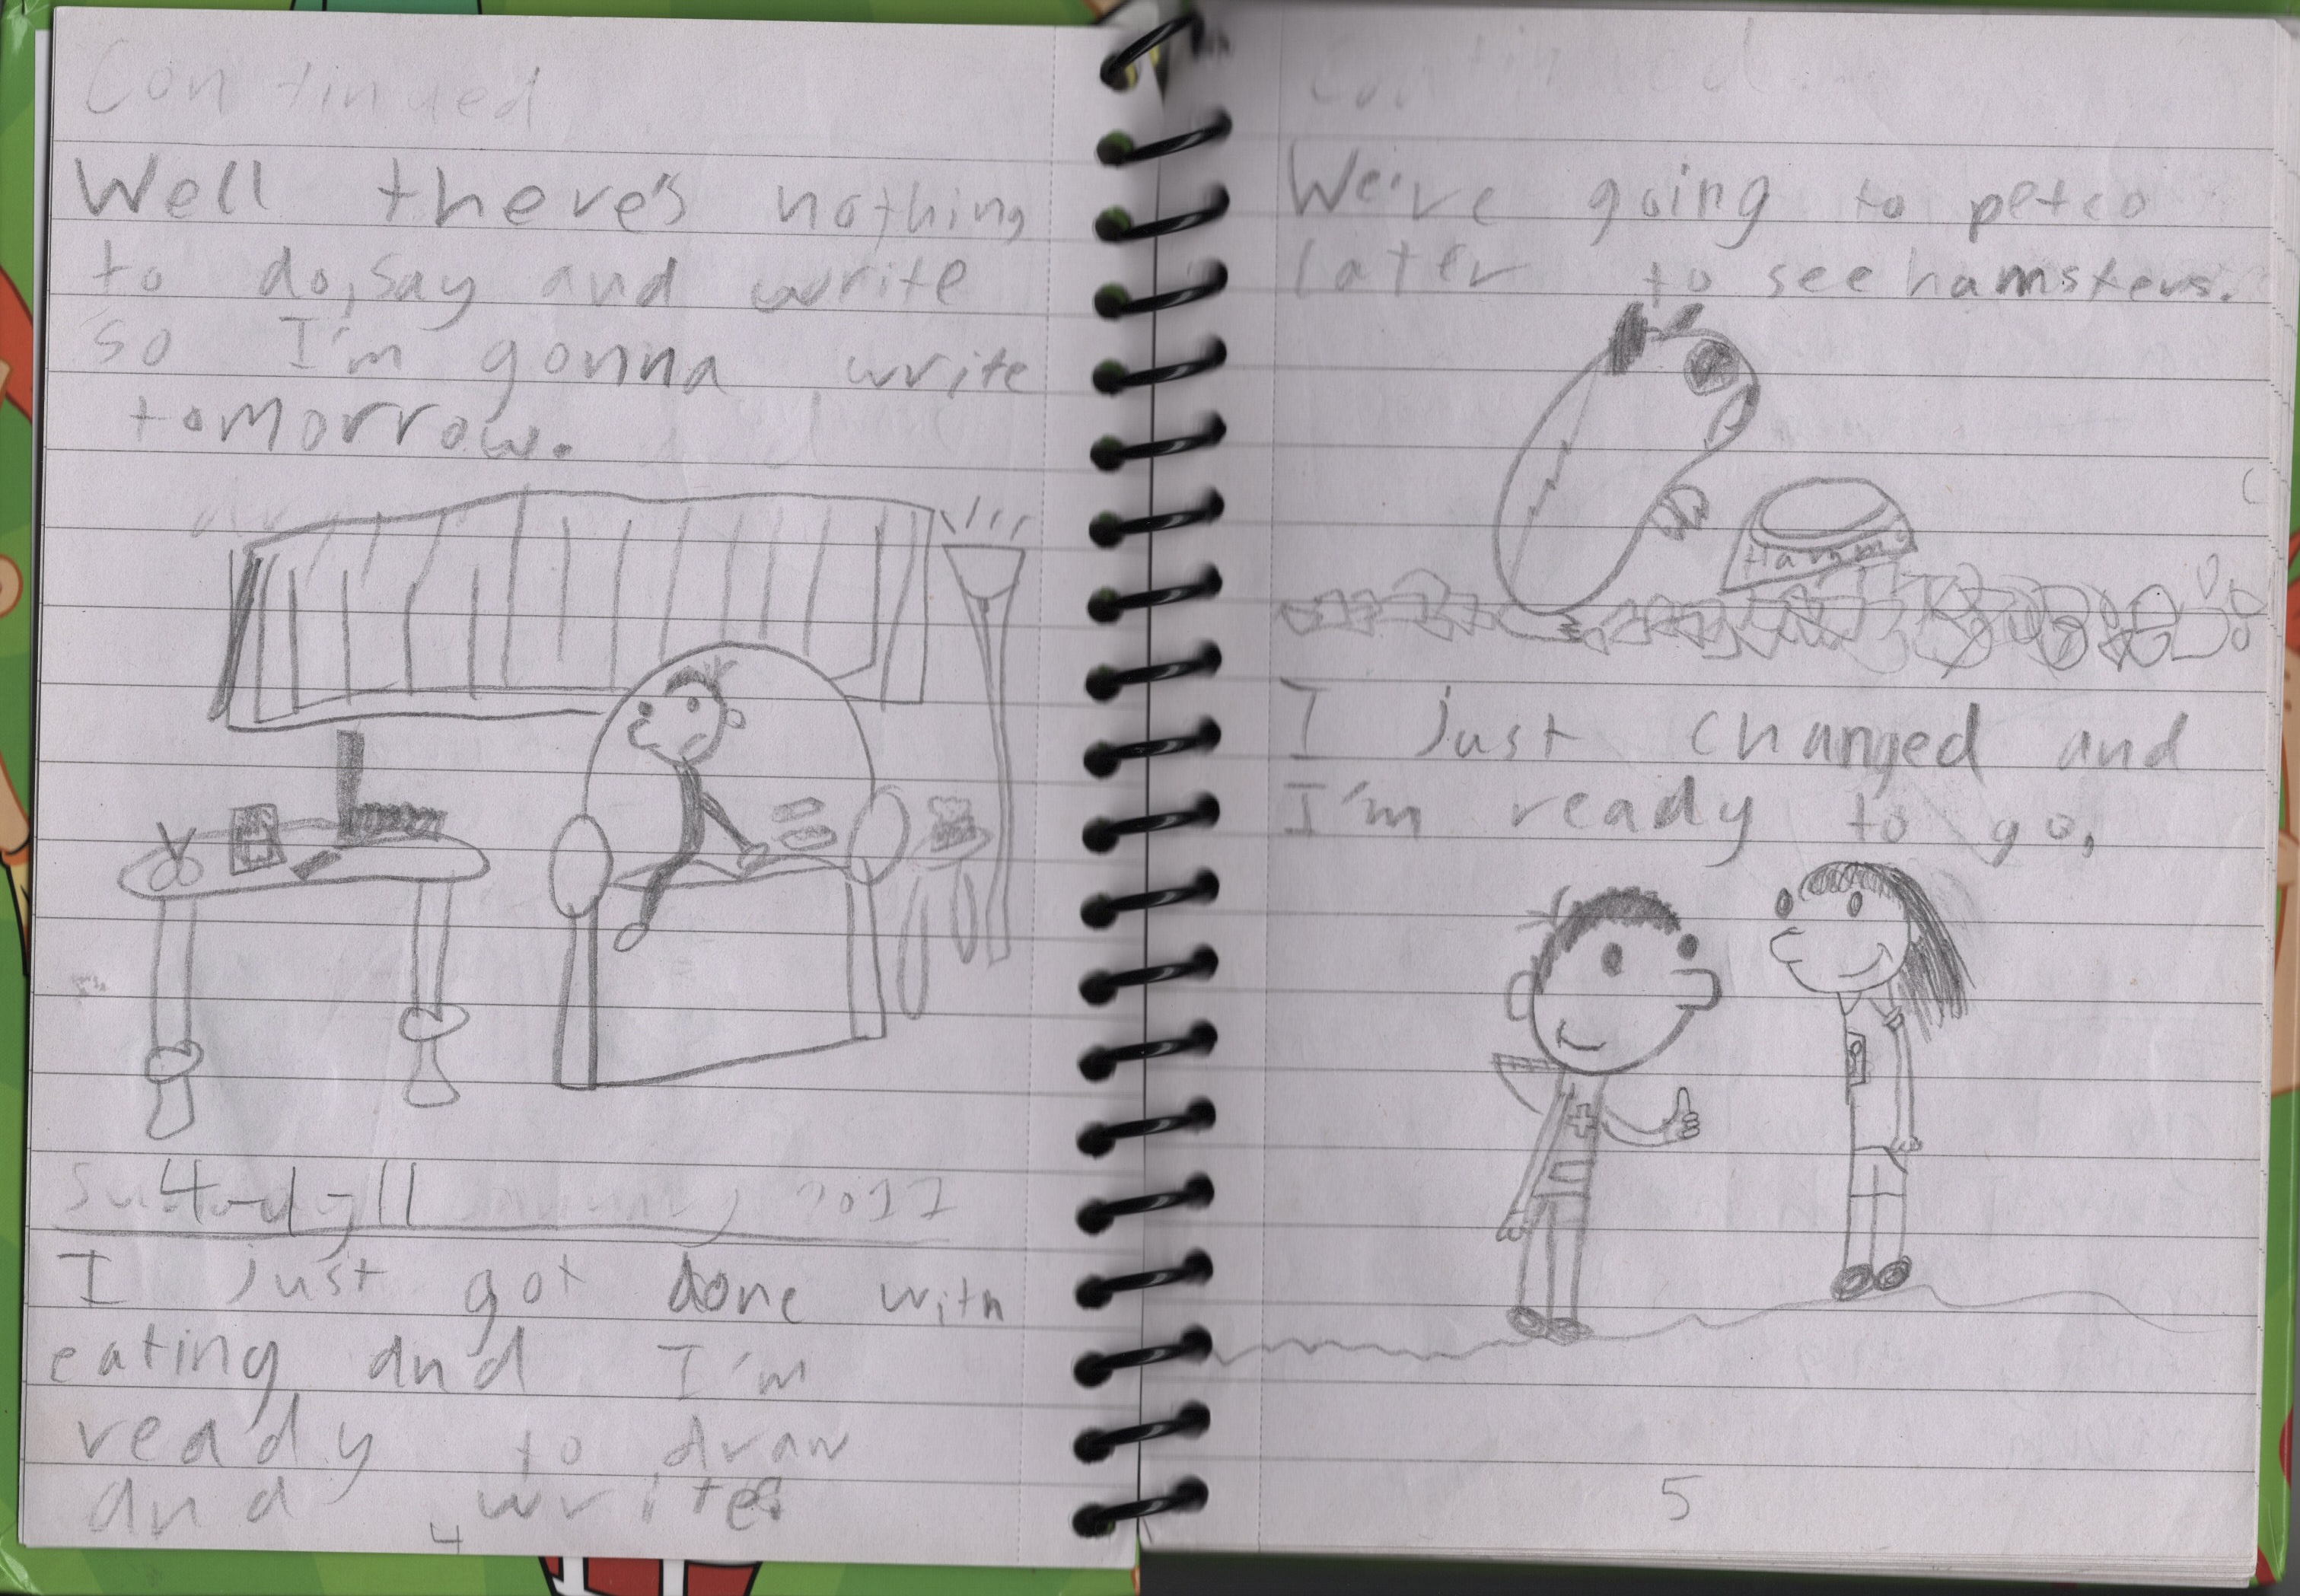 Continued
Well there's nothing
to do, say and write
so I'm gonna write
tomorrow.
2011
I just got done with
eating and I'm
ready to draw
and write.
4
Continued
We're going to petco
later to see hamsters.
Hammy
I just changed and
I'm ready to go,
5